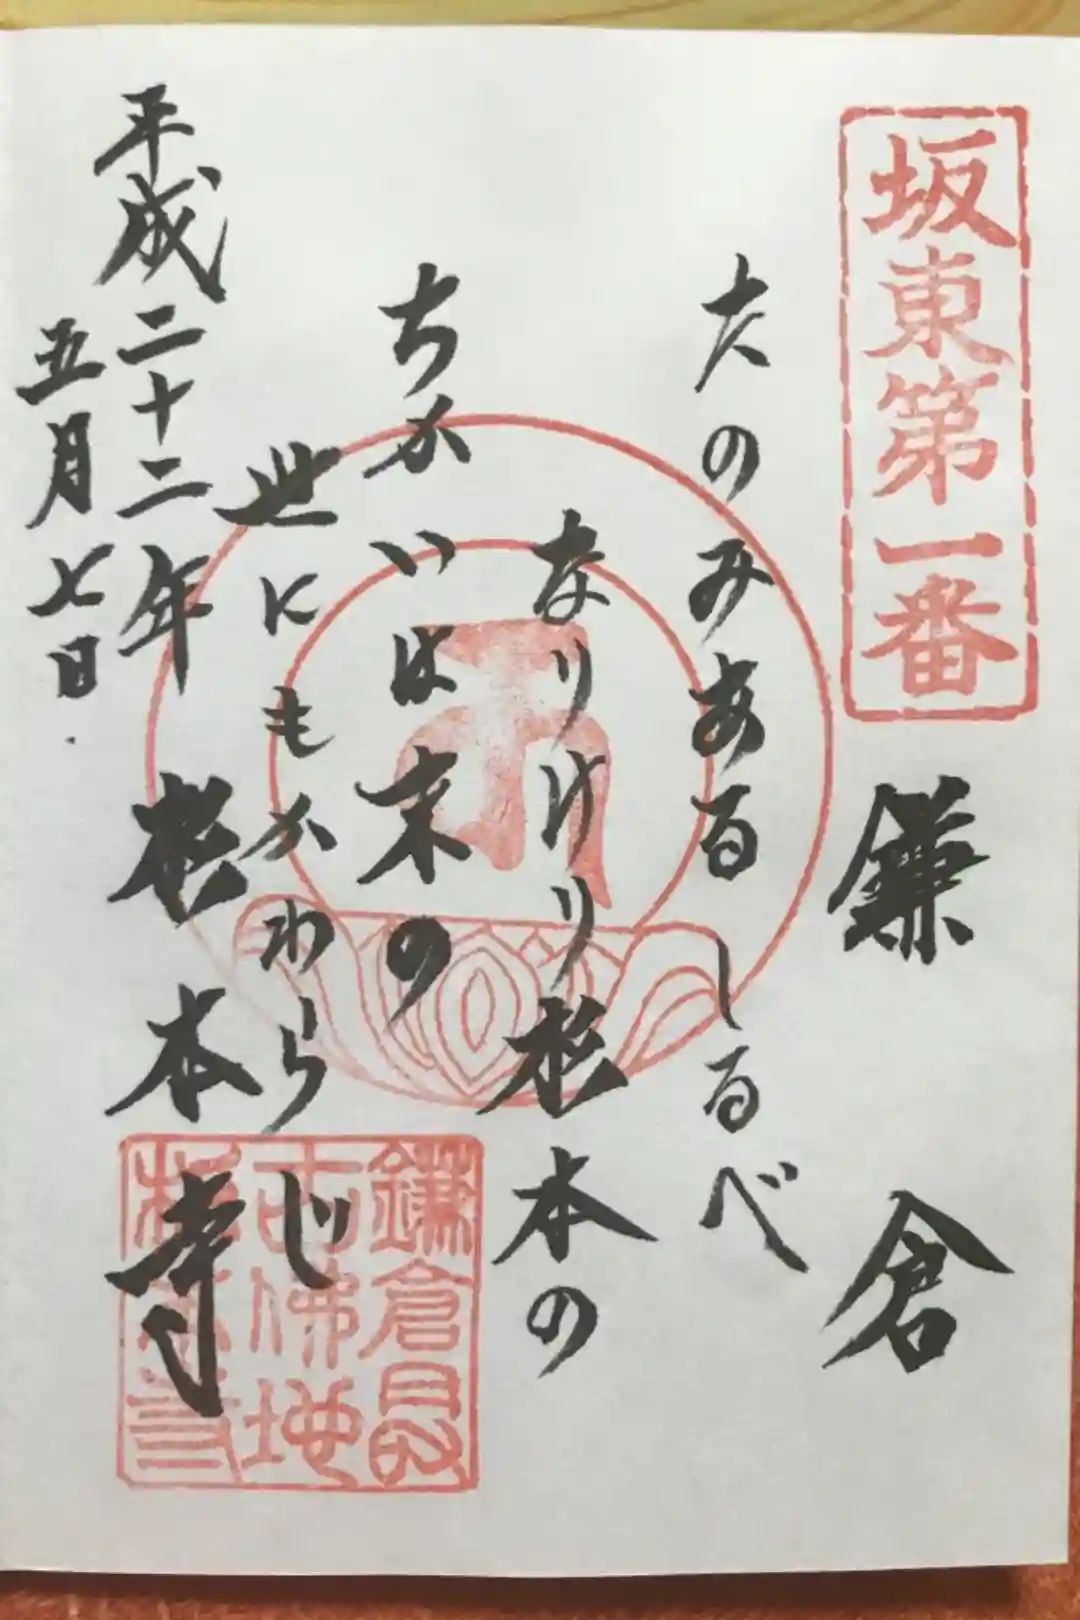 坂東第一番
鎌倉
たのみあるしるべ
なりけり杉本の
ちかいは末の
世にもかわらじ
平成二十二年
五月七日
杉本寺
鎌倉最
古佛地
杉本寺